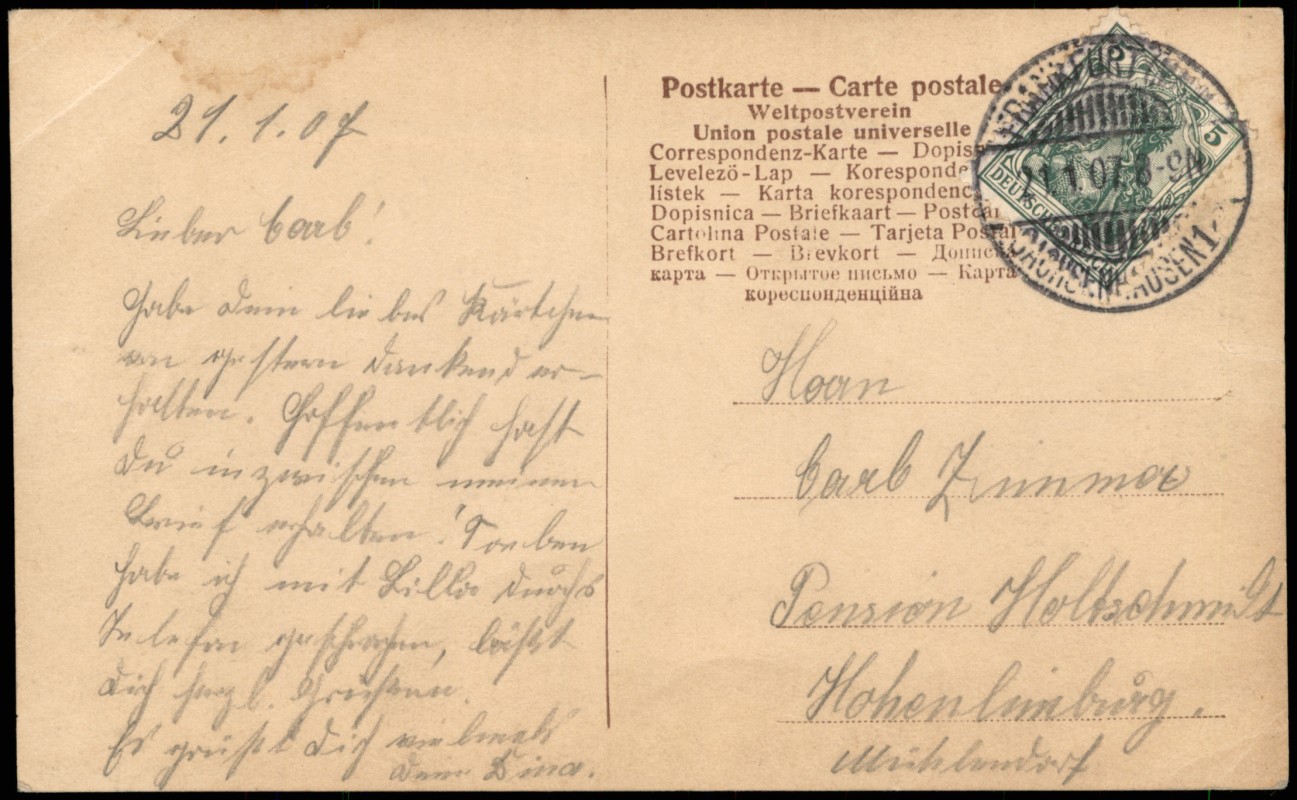 21.1.07
Lieber Carl!
Habe Dein liebes Kärtchen
von gestern dankend er-
halten. Hoffentlich hast
Du inzwischen meinen
Brief erhalten! Soeben
habe ich mit Billa durchs
Telefon gesprochen, läßt
Dich herzl. Grüssen.
Es grüßt Dich vielmals
Deine Dina.
Postkarte — Carte postale
Weltpostverein
Union postale universelle
Correspondenz-Karte — Dopis
Levelezö-Lap — Koresponde
lístek — Karta korespondenc
Dopisnica — Briefkaart — Postcar
Cartolina Postale — Tarjeta Postal
Brefkort — Brevkort — Дописн
карта — Открытое письмо — Карта
кореспонденційна
FRANKFURT
21.1.07.8-9N
SACHSENHAUSEN 1
DEUTSCHES
5
Herrn
Carl Zimmer
Pension Holtschmidt
Hohenlimburg.
Mühlendorf